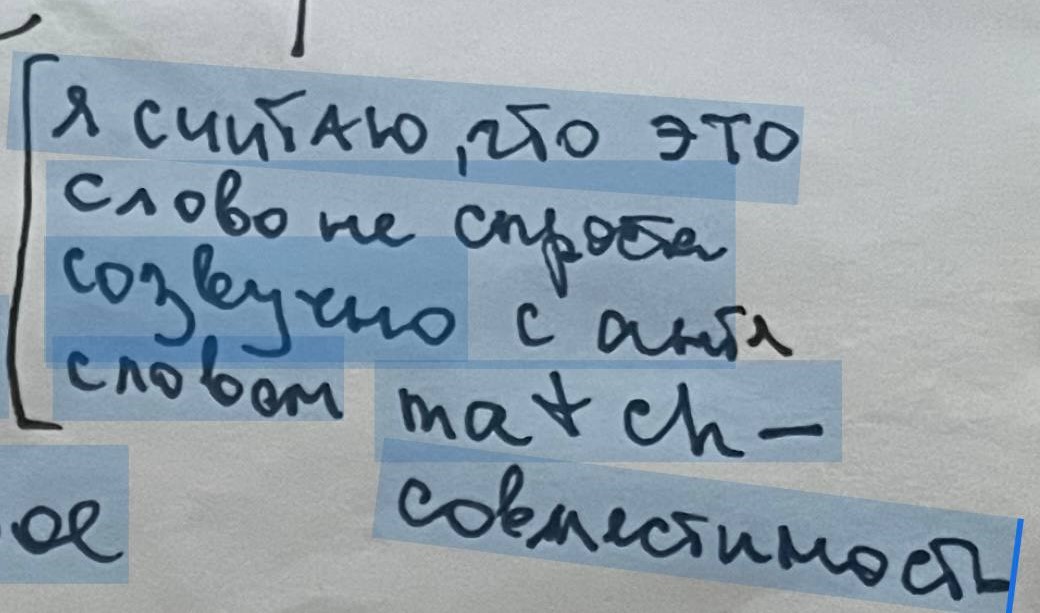 я считаю, что это
слово не спроста
созвучно с англ
словом match –
ое совместимость